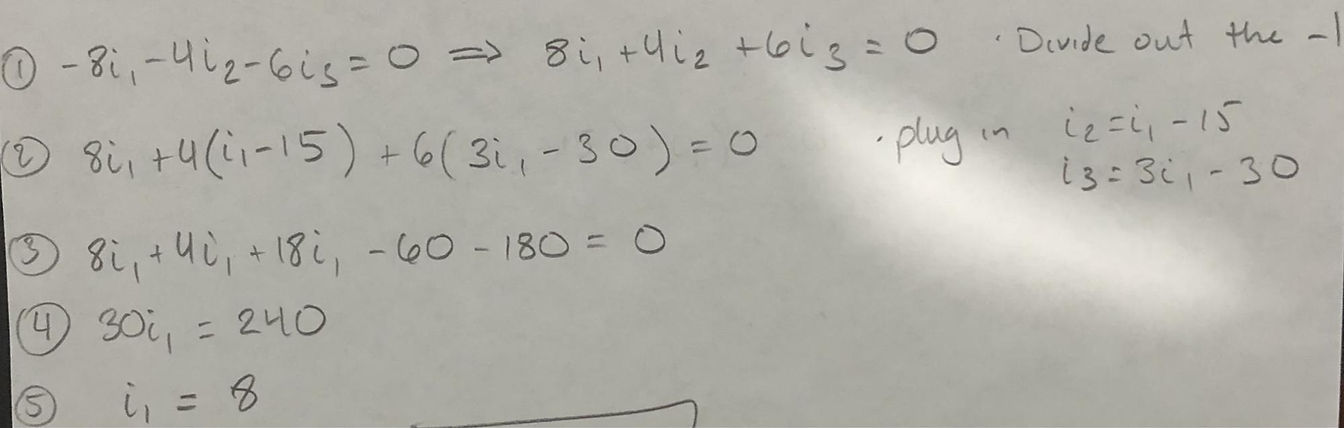 ① -8i₁-4i₂-6i₃=0 ⟹ 8i₁+4i₂+6i₃=0 · Divide out the -1
② 8i₁+4(i₁-15)+6(3i₁-30)=0 · plug in i₂=i₁-15
i₃=3i₁-30
③ 8i₁+4i₁+18i₁-60-180=0
④ 30i₁=240
⑤ i₁=8